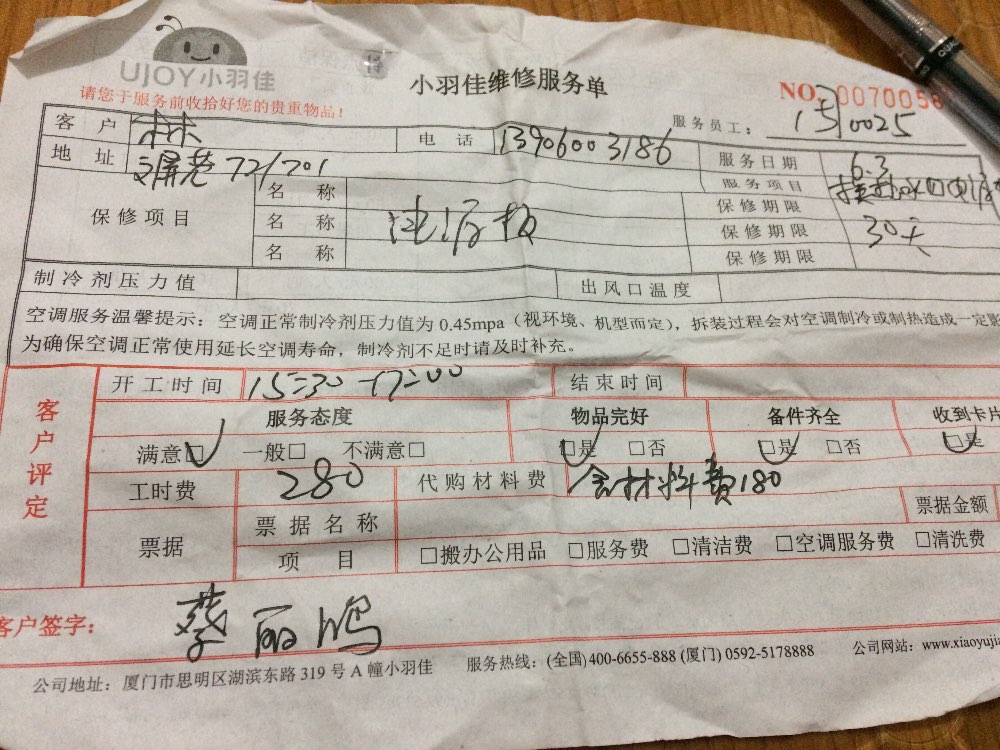 UJOY小羽佳
小羽佳维修服务单
请您于服务前收拾好您的贵重物品!
NO. 0070058
服务员工: 0025
客户 电话 13906003186 服务日期 6.3
地址 72/701 服务项目
保修项目 名称 保修期限
名称 保修期限 30天
名称 保修期限
制冷剂压力值 出风口温度
空调服务温馨提示：空调正常制冷剂压力值为0.45mpa（视环境、机型而定），拆装过程会对空调制冷或制热造成一定影
为确保空调正常使用延长空调寿命，制冷剂不足时请及时补充。
客户评定
开工时间 15:30-17:00 结束时间
服务态度 物品完好 备件齐全 收到卡片
满意□ 一般□ 不满意□ □是 □否 □是 □否 □是
工时费 280 代购材料费 含材料费180
票据 票据名称 票据金额
项目 □搬办公用品 □服务费 □清洁费 □空调服务费 □清洗费
客户签字: 蔡丽鸿
公司地址：厦门市思明区湖滨东路319号A幢小羽佳 服务热线：(全国)400-6655-888 (厦门) 0592-5178888 公司网站：www.xiaoyujia